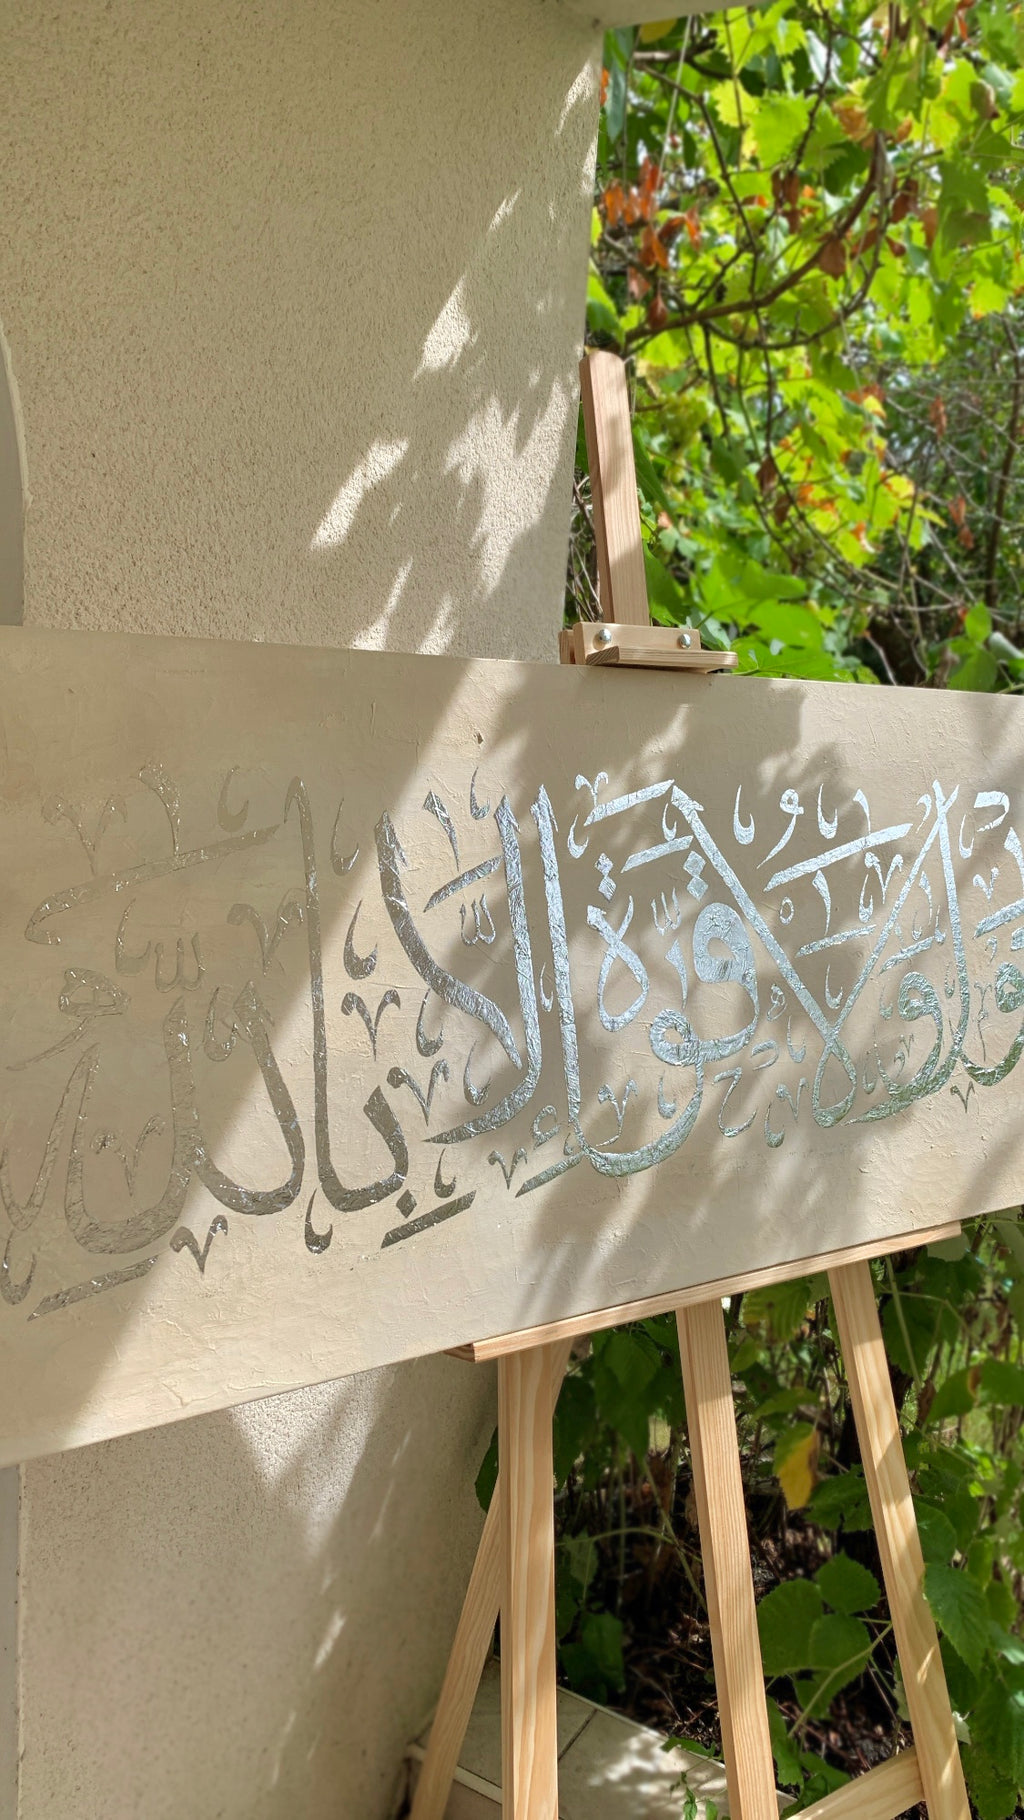 وَلَا قُوَّةَ إِلَّا بِاللَّهِ